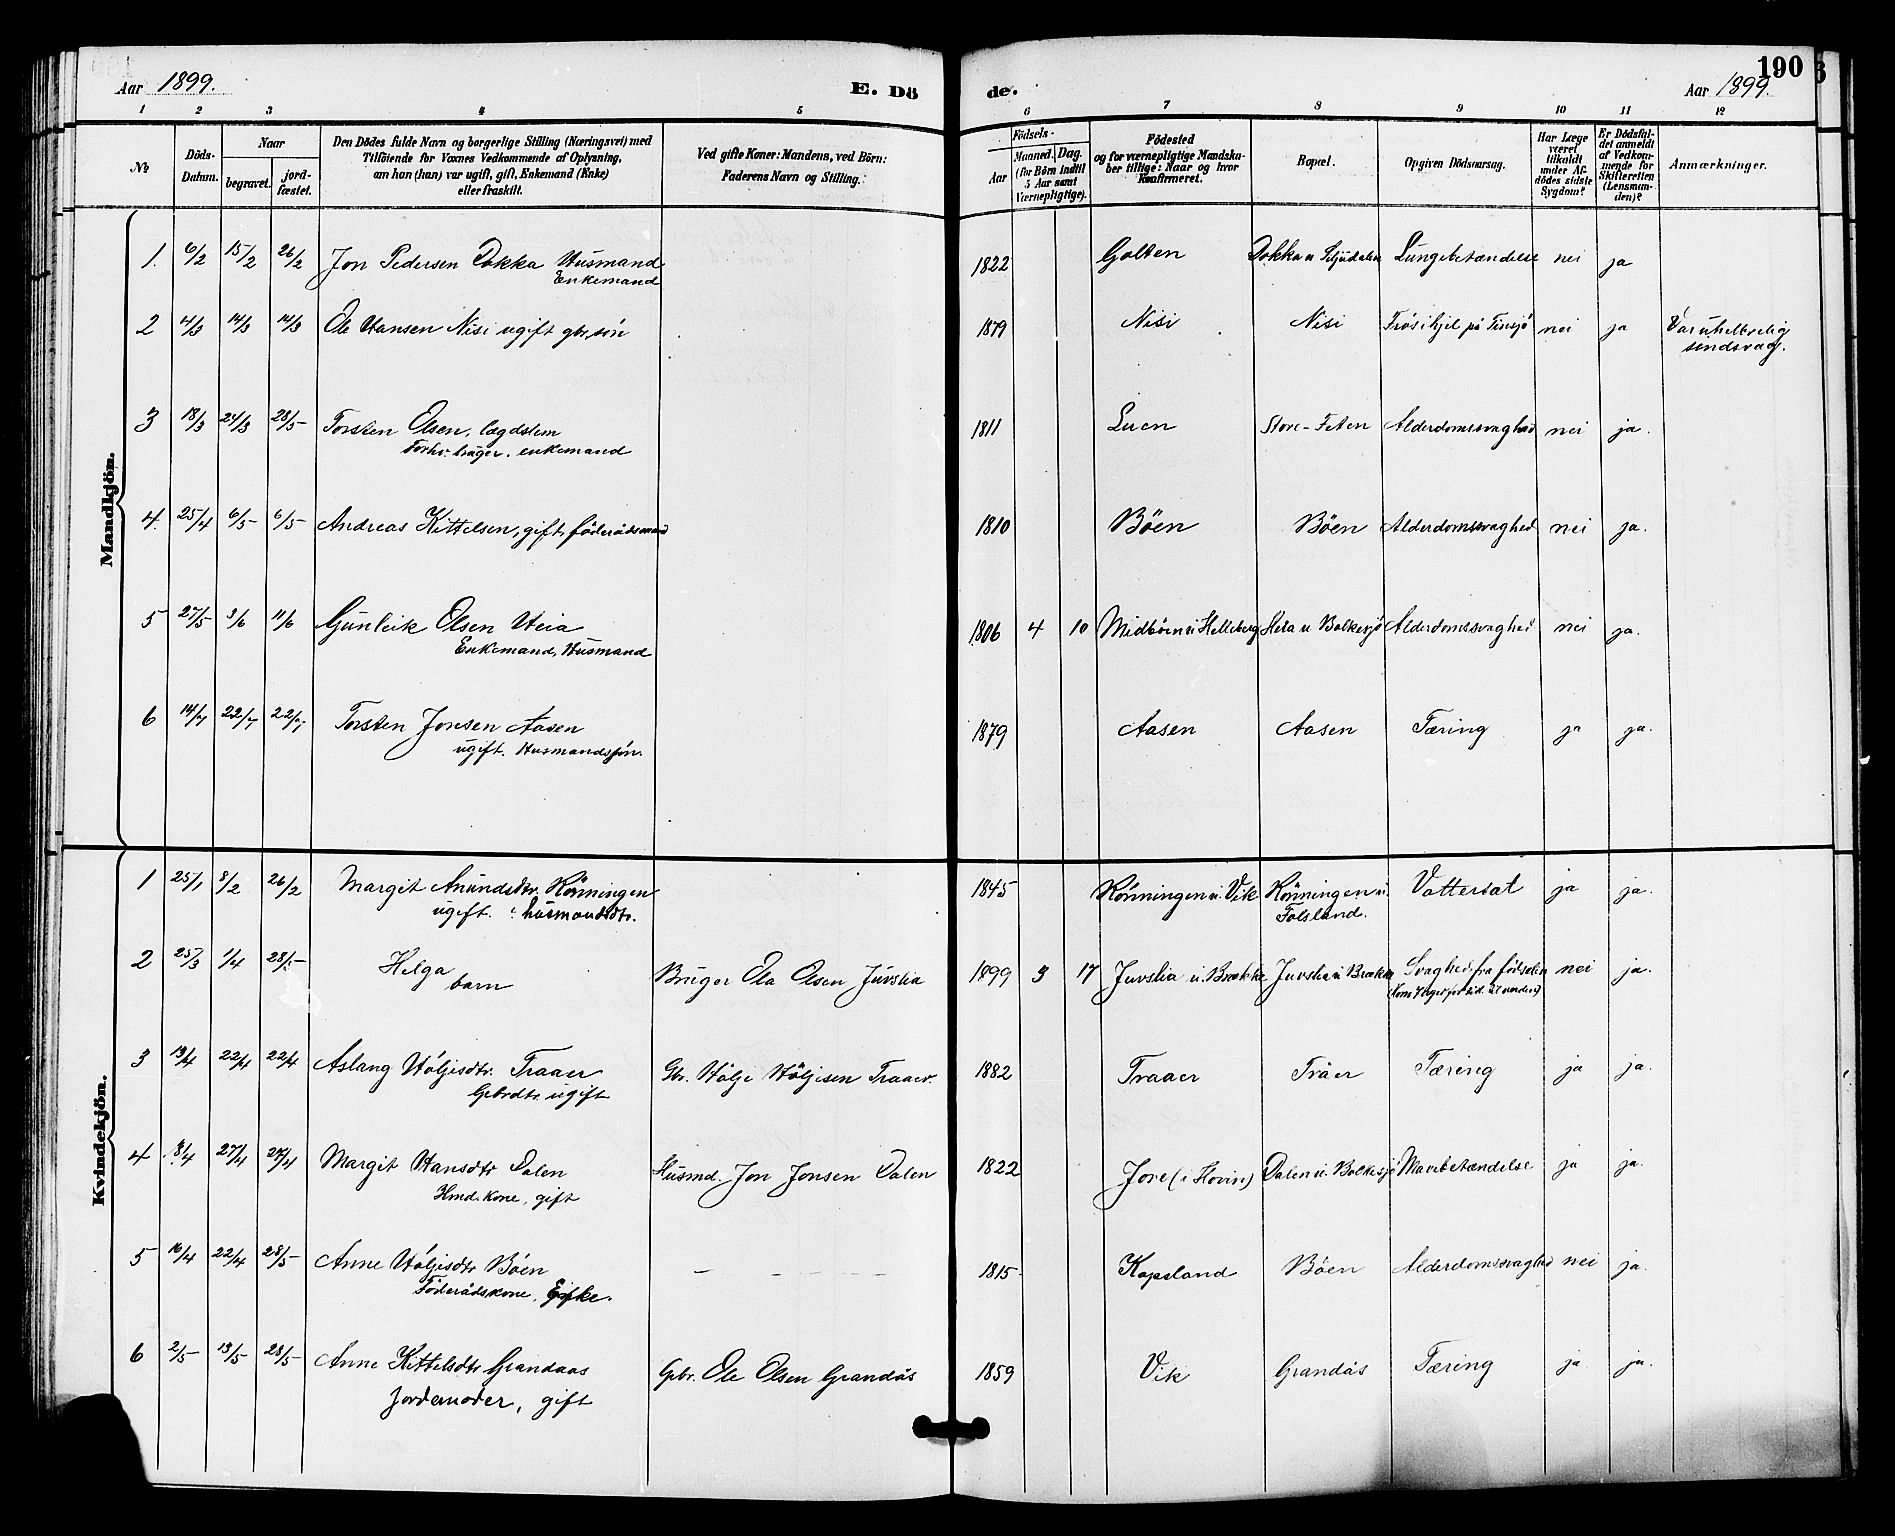 190
Aar 1899. E. Dö de. Aar 1899.
1 2 3 4 5 6 7 8 9 10 11 12
№
Döds-Datum.
Naar
begravet.
jord-fæstet.
Den Dödes fulde Navn og borgerlige Stilling (Næringsvei) med
Tilföiende for Voxnes Vedkommende af Oplysning,
om han (hun) var ugift, gift, Enkemand (Enke)
eller fraskilt.
Ved gifte Koner: Mandens, ved Börn:
Faderens Navn og Stilling.
Födsels-
Aar
Maaned. Dag.
(for Börn indtil
5 Aar samt
Værnepligtige).
Födested
og for værnepligtige Mandska-
ber tillige: Naar og hvor
Konfirmeret.
Bopæl.
Opgiven Dödsaarsag.
Har Læge
været
tilkaldt
under Af-
dödes sidste
Sygdom?
Er Dödsfal-
det anmeldt
af Vedkom-
mende for
Skifteretten
(Lensman-
den)?
Anmærkninger.
Mandkjön.
1. 6/2 15/2 26/2 Jon Pedersen Dokka Husmand 1822 Golten Dokka u Lungebetændelse nei ja
Enkemand
2 4/3 14/3 14/3 Ole Hansen Nisi ugift gbr.sön 1879 Nisi Nisi Frös ihjel på Tinsjö nei ja Var uhelbrelig
sindsvag.
3 18/3 24/3 28/5 Torsten Olsen, lægdslem 1811 Luen Store-Feten Alderdomssvaghed nei ja.
Forhv. brüger. enkemand
4. 25/4 6/5 6/5 Andreas Kittelsen, gift, föderådsmand 1810 Böen Böen Alderdomssvaghed nei ja.
5 27/5 3/6 11/6 Gunleik Olsen Heia 1806 4 10 Midböen u Helleberg Heia u Bolkesjö Alderdomssvaghed nei ja.
Enkemand, Husmand
6 14/7 22/7 22/7 Torsten Jonsen Aasen 1879 Aasen Aasen Tæring ja ja.
ugift. Husmandssön.
Kvindekjön.
1 25/1 8/2 26/2 Margit Anundsdtr. Rönningen 1845 Rönningen u. Vik Rönningen u. Vattersot ja ja.
ugift. husmandsdtr. Folsland.
2 25/3 1/4 28/5 Helga Brüger Ola Olsen Juvslia 1899 3 17 Juvslia u. Brække Juvslia u Brække Svaghed fra födselen nei ja.
barn
3 13/4 22/4 22/4 Aslaug Höljesdtr. Traaer Gbr. Hölje Höljesen Traaer. 1882 Traaer Tråer Tæring ja ja.
Gbrdtr. ugift
4 8/4 27/4 27/4 Margit Hansdtr Dalen Husmd. Jon Jonsen Dalen 1822 Jore (i Hovin) Dalen u. Bolkesjö Mavebetændelse ja ja.
Hmd. kone, gift
5 16/4 22/4 28/5 Anne Höljesdtr Böen — — — — 1815 Kopsland Böen Alderdomssvaghed nei ja.
Föderådskone, Enke.
6 2/5 13/5 28/5 Anne Kittelsdtr Grandaas Gbr. Ole Olsen Grandås 1859 Vik Grandås Tæring ja ja.
Jordemoder, gift